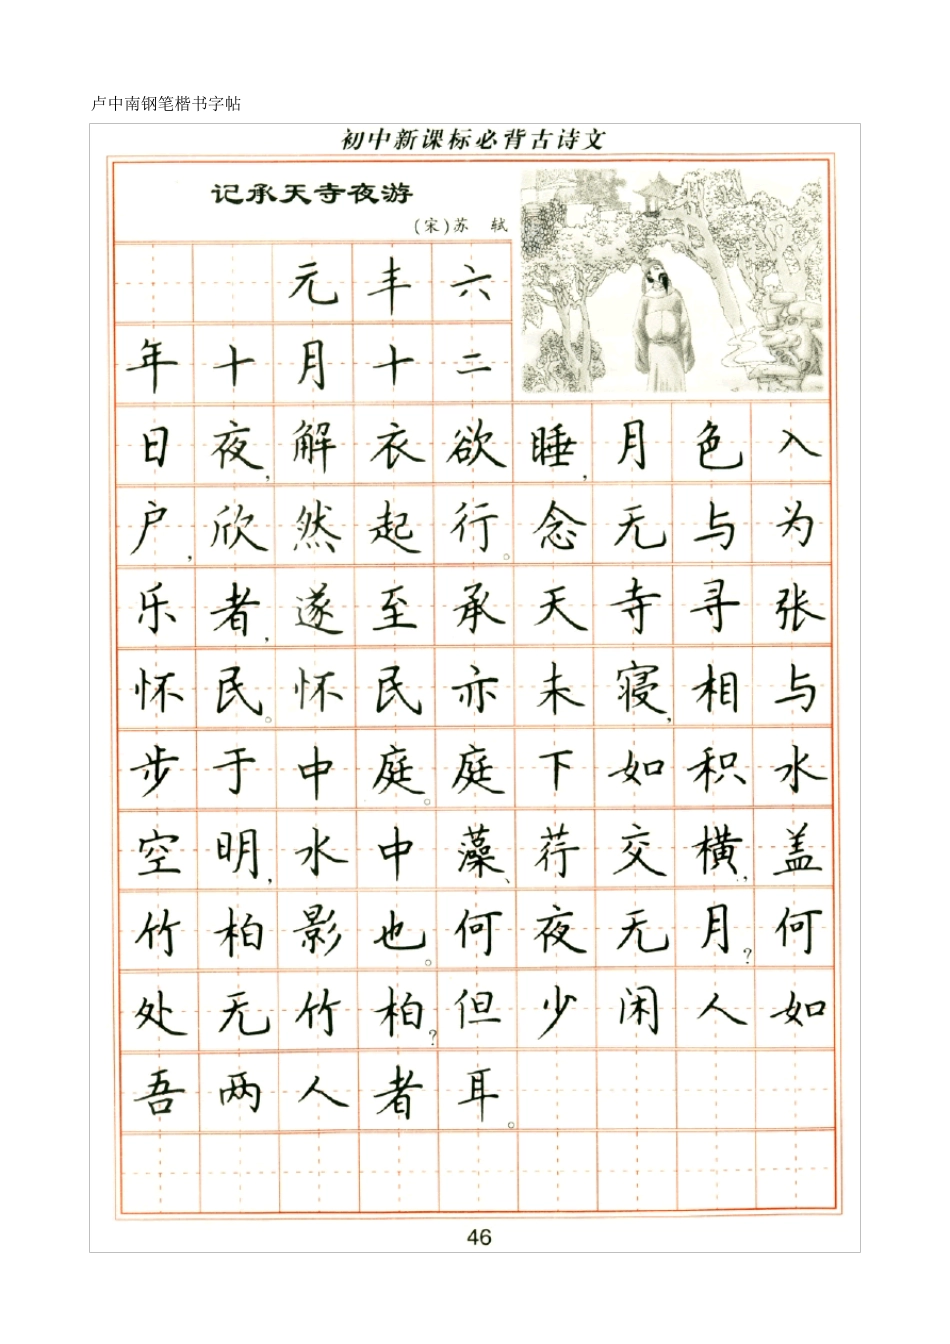 卢中南钢笔楷书字帖
初中新课标必背古诗文
记承天寺夜游
(宋)苏 轼
元丰六
年十月十二
日夜,解衣欲睡,月色入
户,欣然起行。念无与为
乐者,遂至承天寺寻张
怀民。怀民亦未寝,相与
步于中庭。庭下如积水
空明,水中藻、荇交横,盖
竹柏影也。何夜无月?何
处无竹柏?但少闲人如
吾两人者耳。
46